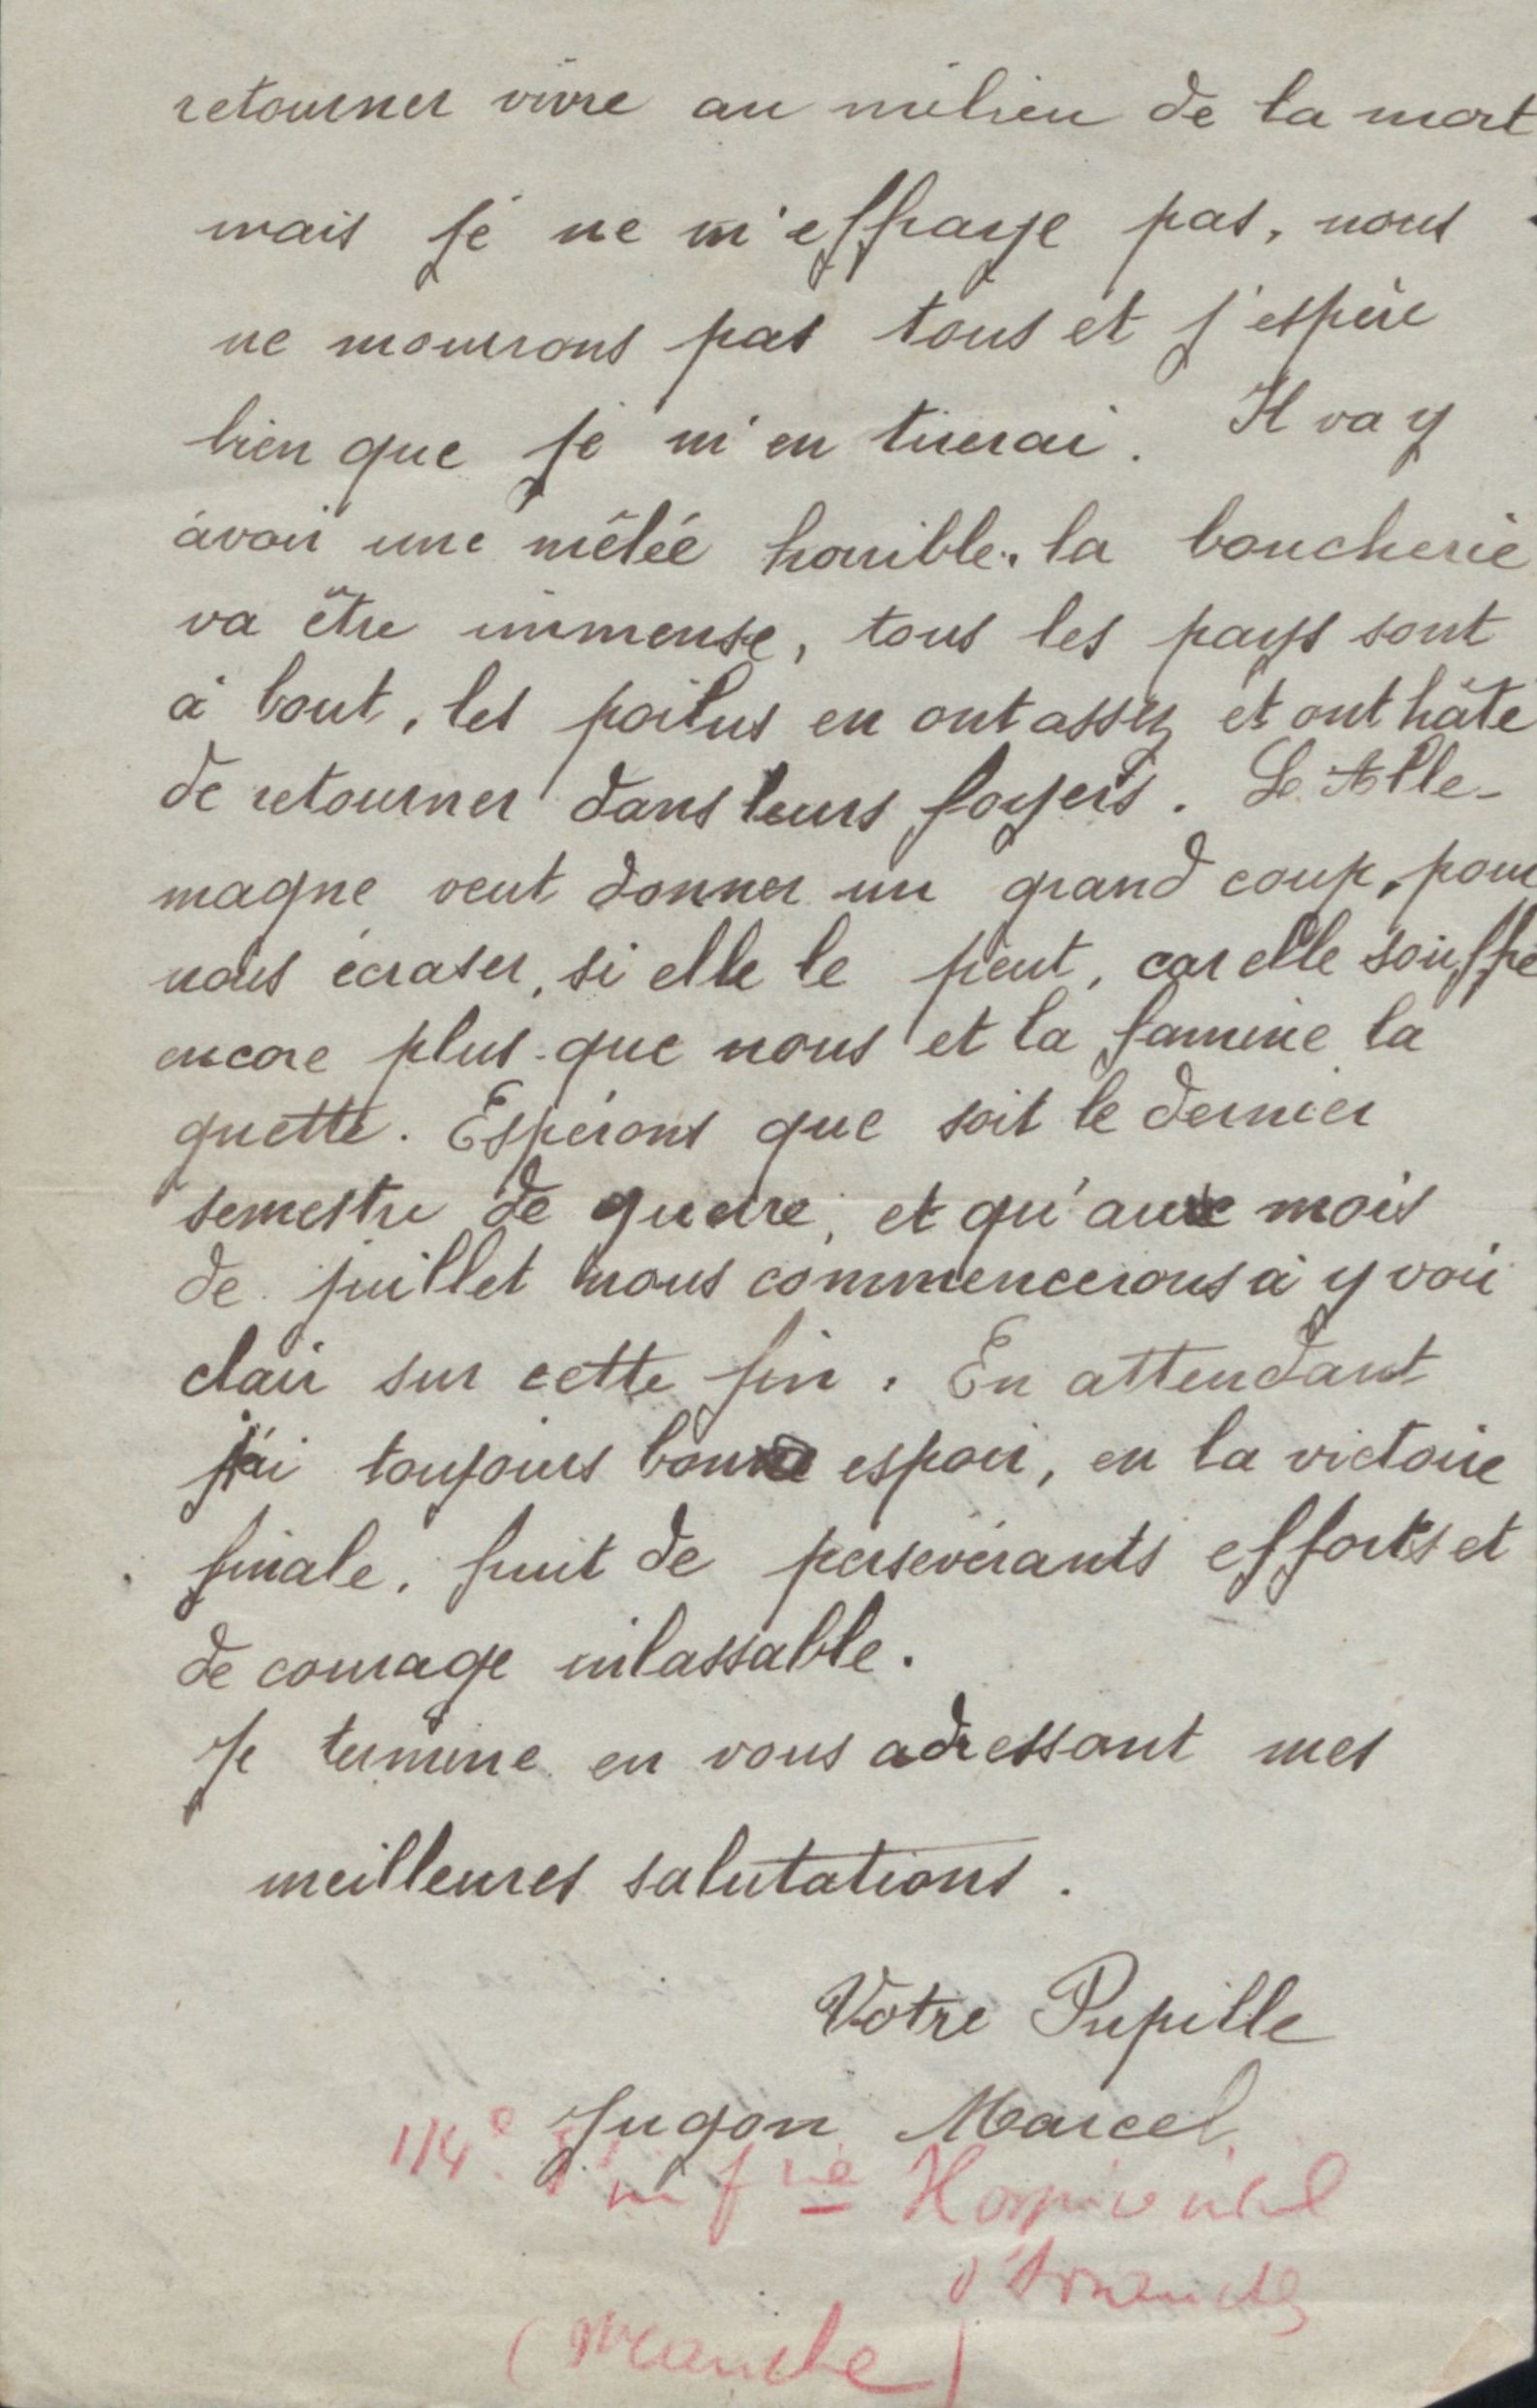 retourner vivre au milieu de la mort
mais je ne m'effraye pas, nous
ne mourrons pas tous et j'espère
bien que je m'en tirerai. Il va y
avoir une mêlée horrible. la boucherie
va être immense, tous les pays sont
à bout, les poilus en ont assez et ont hâte
de retourner dans leurs foyers. L'Alle-
magne veut donner un grand coup, pour
nous écraser, si elle le peut, car elle souffre
encore plus que nous et la famine la
guette. Espérons que soit le dernier
semestre de guerre, et qu'au mois
de juillet nous commencerons à y voir
clair sur cette fin. En attendant
j'ai toujours bon espoir, en la victoire
finale, fruit de persévérants efforts et
de courage inlassable.
Je termine en vous adressant mes
meilleures salutations.
Votre Pupille
Jugon Marcel
114e d'inf rie Hospice
(Manche)